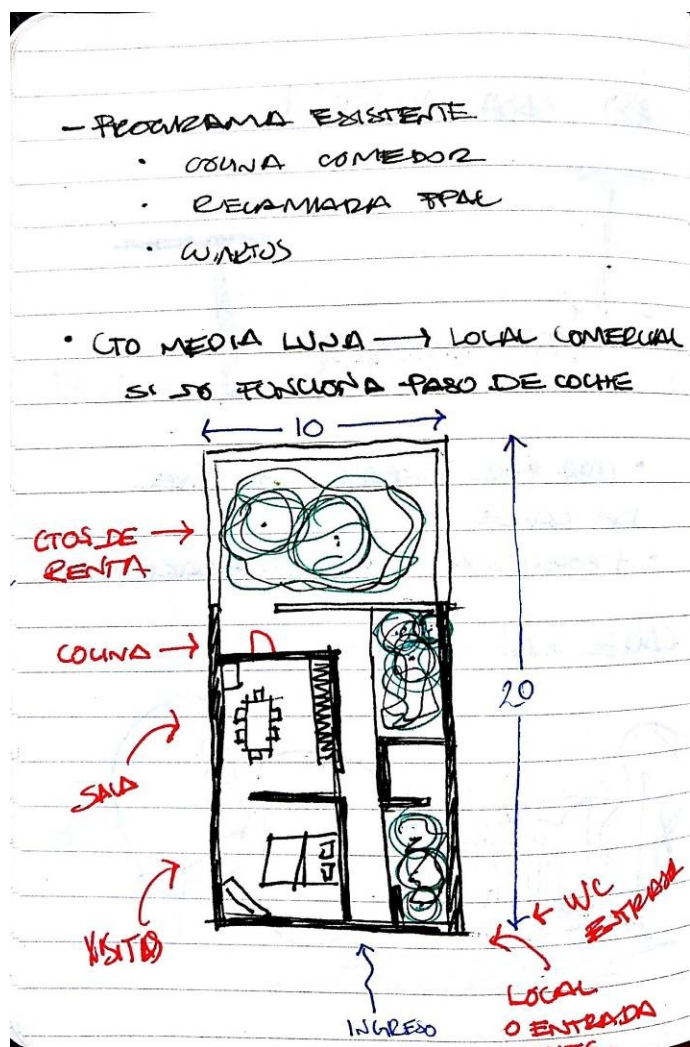 - PROGRAMA EXISTENTE
• COCINA COMEDOR
• RECAMARA PPAL
•
• CTO MEDIA LUNA → LOCAL COMERCIAL
SI NO FUNCIONA PASO DE COCHE
10
CTOS DE →
RENTA
COCINA →
20
SALA
VISITAS
← WC
ENTRADA
LOCAL
O ENTRADA
INGRESO